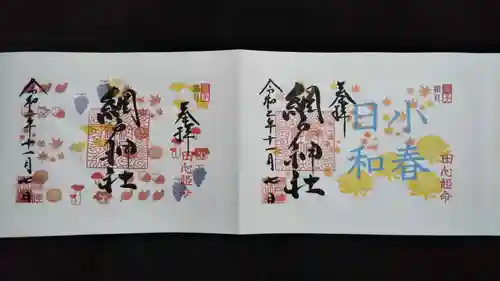 奉拝
田心姫命
小春
日和
網戸神社
令和三年十一月七日
奉拝
田心姫命
網戸神社
令和三年十一月七日